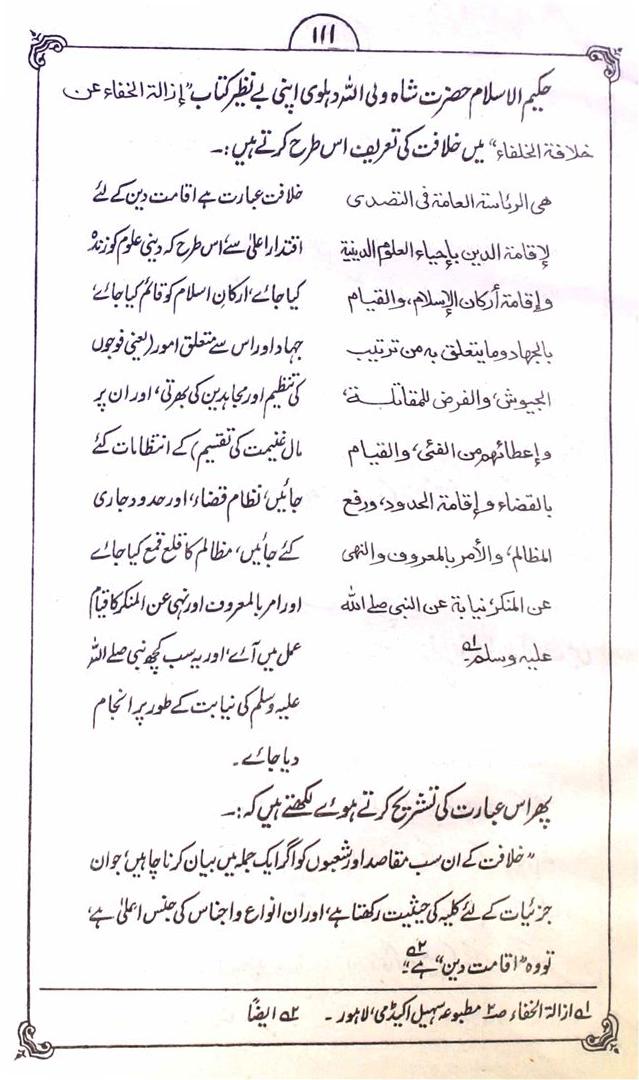 ۱۱۱
حکیم الاسلام حضرت شاہ ولی اللہ دہلوی اپنی بے نظیر کتاب "إزالة الخفاء عن
خلافة الخلفاء" میں خلافت کی تعریف اس طرح کرتے ہیں :۔
هی الرئاسة العامة فی التصدی
لإقامة الدین بإحیاء العلوم الدینیة
وإقامة أرکان الإسلام، والقیام
بالجهاد وما یتعلق به من ترتیب
الجیوش، والفرض للمقاتلة،
وإعطائهم من الفئی، والقیام
بالقضاء وإقامة الحدود، ورفع
المظالم، والأمر بالمعروف والنهی
عن المنکر نیابة عن النبی صلے الله
علیه وسلم ؎۱
خلافت عبارت ہے اقامت دین کے لئے
اقتدار اعلیٰ سے، اس طرح کہ دینی علوم کو زندہ
کیا جائے، ارکان اسلام کو قائم کیا جائے،
جہاد اور اس سے متعلق امور (یعنی فوجوں
کی تنظیم اور مجاہدین کی بھرتی، اور ان پر
مال غنیمت کی تقسیم) کے انتظامات کئے
جائیں، نظام قضاء، اور حدود جاری
کئے جائیں، مظالم کا قلع قمع کیا جائے
اور امر بالمعروف اور نہی عن المنکر کا قیام
عمل میں آئے، اور یہ سب کچھ نبی صلے اللہ
علیہ وسلم کی نیابت کے طور پر انجام
دیا جائے۔
پھر اس عبارت کی تشریح کرتے ہوئے لکھتے ہیں کہ :۔
"خلافت کے ان سب مقاصد اور شعبوں کو اگر ایک جملہ میں بیان کرنا چاہیں، جو ان
جزئیات کے لئے کلیہ کی حیثیت رکھتا ہے، اور ان انواع و اجناس کی جنس اعلیٰ ہے،
تو وہ "اقامت دین" ہے" ؎۲
؎۱ ازالۃ الخفاء صـ۲ مطبوعہ سہیل اکیڈمی، لاہور ۔ ؎۲ ایضاً